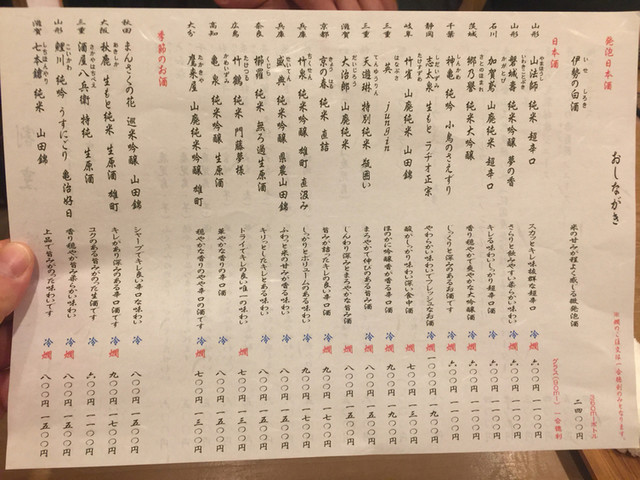 おしながき
※燗のご注文は一合徳利のみとなります。
発泡日本酒
伊勢の白酒 米の甘みが程よく感じる微発泡酒 360mlボトル 二四〇〇円
日本酒 グラス(90ml) 一合徳利
山形 山法師 純米 超辛口 スカッとキレ味抜群な超辛口 冷 六〇〇円 一一〇〇円
山形 磐城壽 純米吟醸 夢の香 さらりと飲みやすい柔らかい味わい 冷 六〇〇円 一一〇〇円
石川 加賀鳶 山廃純米 超辛口 キレる味わいしっかり超辛口酒 冷 燗 六〇〇円 一一〇〇円
茨城 郷乃譽 純米大吟醸 香り穏やかで爽やかな大吟醸酒 冷 六〇〇円 一一〇〇円
千葉 神亀 純吟 小鳥のさえずり じっくりと深みのあるお酒です 冷 燗
静岡 志太泉 生もと ラヂオ正宗 やわらかい味わいでフレッシュなお酒 冷 一〇〇〇円 一九〇〇円
岐阜 竹雀 山廃純米 酸がしっかり味わい深い食中酒 燗 七〇〇円 一三〇〇円
三重 英 jungin ほのかに吟醸香が香る辛口 冷 燗 一九〇〇円
三重 天遊琳 特別純米 瓶囲い まろやかで伸びのある旨み酒 冷 燗 七〇〇円 一三〇〇円
滋賀 大治郎 山廃純米 じんわり深みとまろやかな旨み 燗 八〇〇円 一五〇〇円
京都 京の春 純米 直詰 旨みが詰ったキレの良い辛口 冷 燗 九〇〇円 一七〇〇円
兵庫 竹泉 純米吟醸 雄町 直汲み しっかりとボリュームのある味わい 冷 九〇〇円 一七〇〇円
兵庫 盛典 純米吟醸 県農山田錦 ふわっと米の甘みが香る味わい 冷 八〇〇円 一五〇〇円
奈良 櫛羅 純米 無ろ過生原酒 キリッとしたキレとある味わい 冷 八〇〇円 一五〇〇円
広島 竹鶴 純米 門藤夢様 ドライでキレの良い唯一の味わい 燗 七〇〇円 一三〇〇円
高知 亀泉 純米吟醸 生原酒 華やかな香りの辛口 冷 八〇〇円 一五〇〇円
大分 鷹来屋 山廃純米吟醸 雄町 穏やかな香りのやや辛口の酒です 冷 燗 七〇〇円 一三〇〇円
季節のお酒
秋田 まんさくの花 巡米吟醸 山田錦 シャープでキレ良い辛口な味わい 冷 八〇〇円 一五〇〇円
大阪 秋鹿 生もと純米 生原酒 雄町 キレがあり深みのある辛口酒です 冷 燗 九〇〇円 一七〇〇円
三重 酒屋八兵衛 特純 生原酒 コクのある旨みがのった生酒です 冷 六〇〇円 一一〇〇円
山形 鯉川 純吟 うすにごり 亀治好日 香り穏やか旨み柔らかい味わい 冷 八〇〇円 一五〇〇円
滋賀 七本鎗 純米 山田錦 上品で旨みがのった味わいです 冷 燗 八〇〇円 一五〇〇円